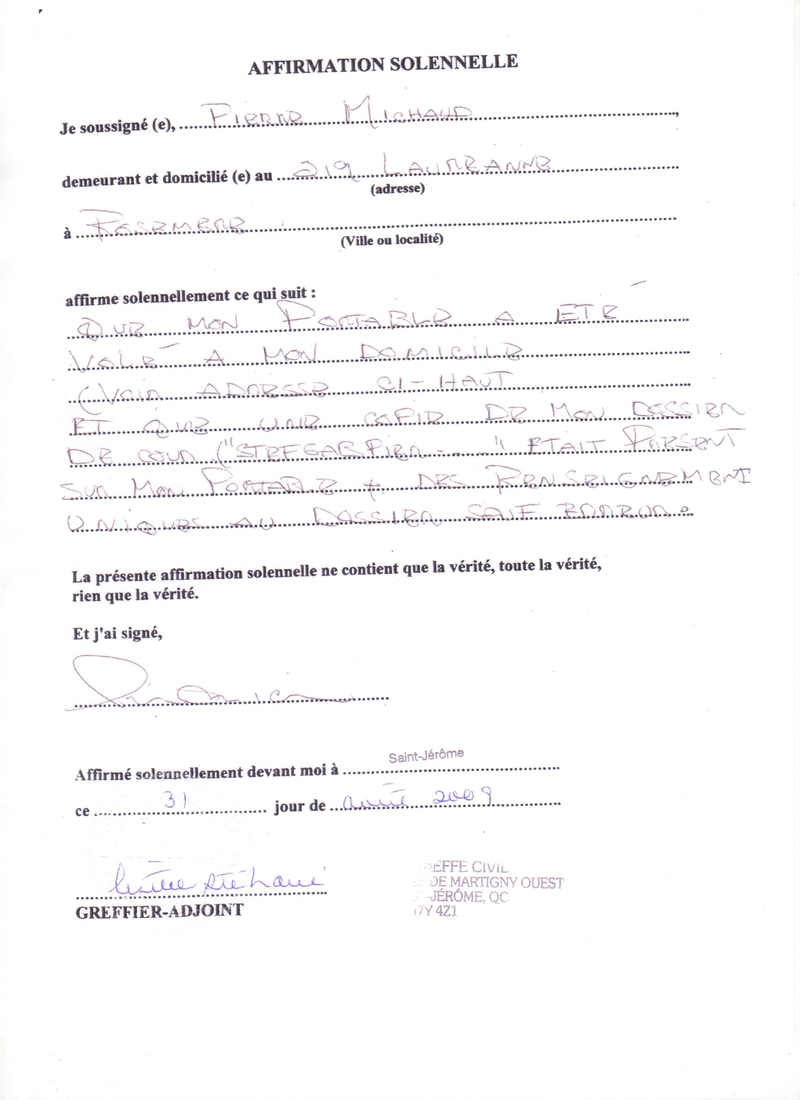 AFFIRMATION SOLENNELLE
Je soussigné (e), PIERRE MICHAUD,
demeurant et domicilié (e) au 219 LAUREANNE
(adresse)
à ROSEMERE
(Ville ou localité)
affirme solennellement ce qui suit :
QUE MON PORTABLE A ETÉ
VOLÉ A MON DOMICILE
(VOIR ADRESSE CI-HAUT
ET QUE UNE COPIE DE MON DOSSIER
DE COUR ("STREGARPIER--- " ETAIT PRESENT
SUR MON PORTABLE + DES RENSEIGNEMENT
UNIQUES AU DOSSIER
La présente affirmation solennelle ne contient que la vérité, toute la vérité,
rien que la vérité.
Et j'ai signé,
Affirmé solennellement devant moi à Saint-Jérôme
ce 31 jour de 2009
GREFFIER-ADJOINT
EFFE CIVIL
DE MARTIGNY OUEST
-JÉRÔME, QC
7Y 4Z1